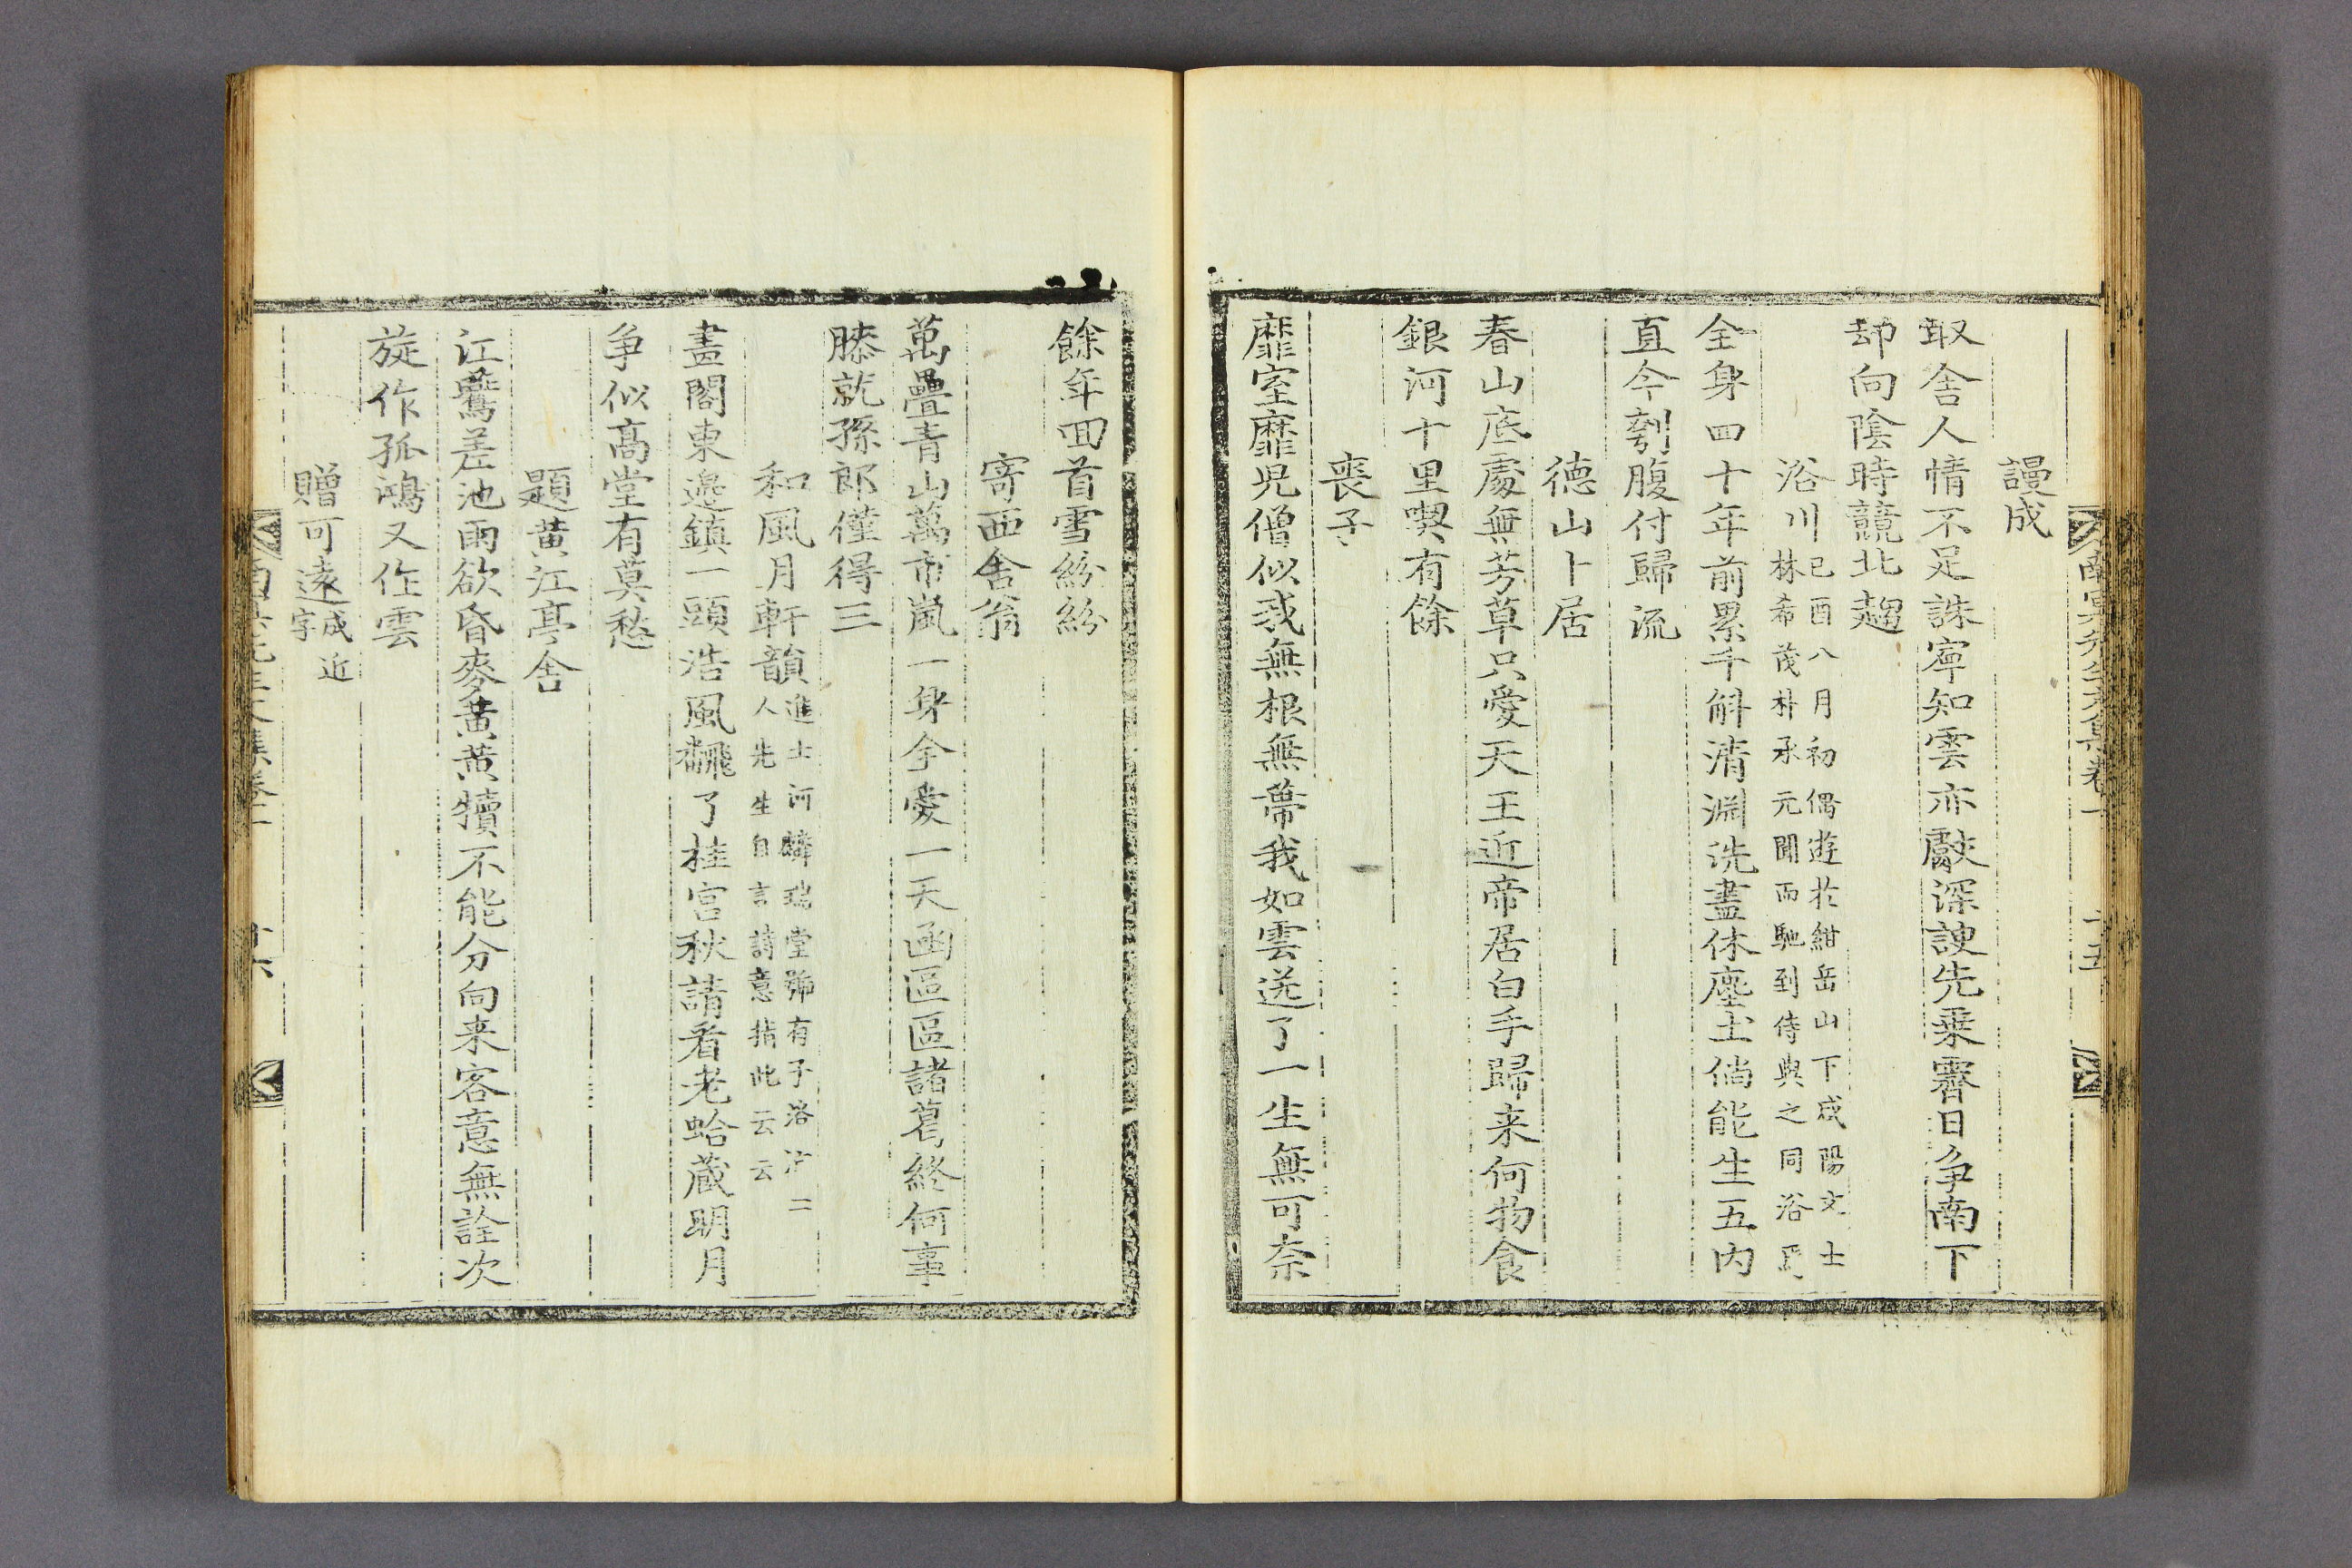 謾成
取舍人情不足誅寧知雲亦獻深諛先乗霽日爭南下
却向陰時競北趨
浴川己酉八月初偶遊於紺岳山下咸陽文士
林希茂朴承元聞而馳到侍與之同浴焉
全身四十年前累千斛清淵洗盡休塵土倘能生五内
直今刳腹付歸流
德山卜居
春山底處無芳草只愛天王近帝居白手歸来何物食
銀河十里喫有餘
喪子
靡室靡兒僧似我無根無蔕我如雲送了一生無可奈
餘年回首雪紛紛
寄西舍翁
萬疊青山萬市嵐一身全愛一天函區區諸葛終何事
膝就孫郎僅得三
和風月軒韻進士河麟瑞堂號有子洛沖二
人先生自言詩意指此云云
畫閣東邊鎮一頭浩風飜了桂宮秋請看老蛤蔵明月
争似髙堂有莫愁
題黄江亭舍
江鷰差池雨欲昏麥黄黄犢不能分向来客意無詮次
旋作孤鴻又作雲
贈可遠成近
字
南冥先生文集卷一 十五